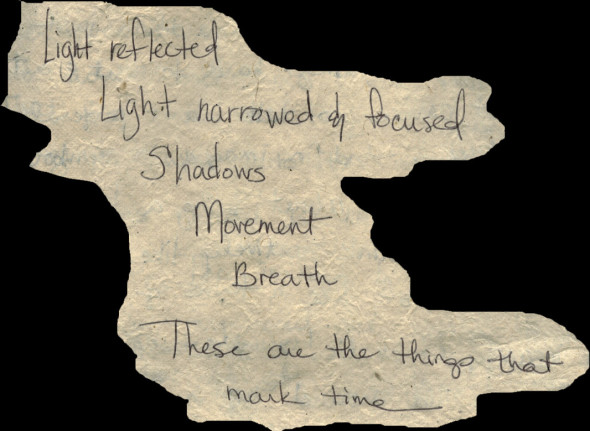 Light reflected
Light narrowed & focused
Shadows
Movement
Breath
These are the things that
mark time